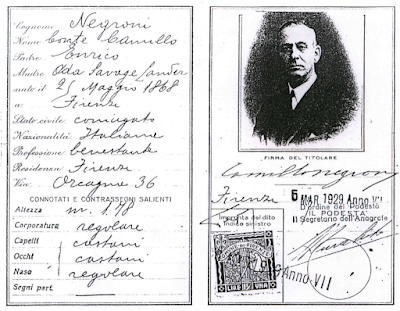 Cognome Negroni
Nome Conte Camillo
Padre Enrico
Madre Ada Savage Landor
nato il 25 Maggio 1868
a Firenze
Stato civile coniugato
Nazionalità Italiana
Professione benestante
Residenza Firenze
Via Orcagna 36
CONNOTATI E CONTRASSEGNI SALIENTI
Altezza m. 1.78
Corporatura regolare
Capelli castani
Occhi castani
Naso regolare
Segni part.
FIRMA DEL TITOLARE
Camillo Negroni
Firenze
6 MAR 1929 Anno VII
D'ordine del Podestà
IL PODESTÀ
Il Segretario dell'Anagrafe
Impronta del dito
indice sinistro
Anno VII